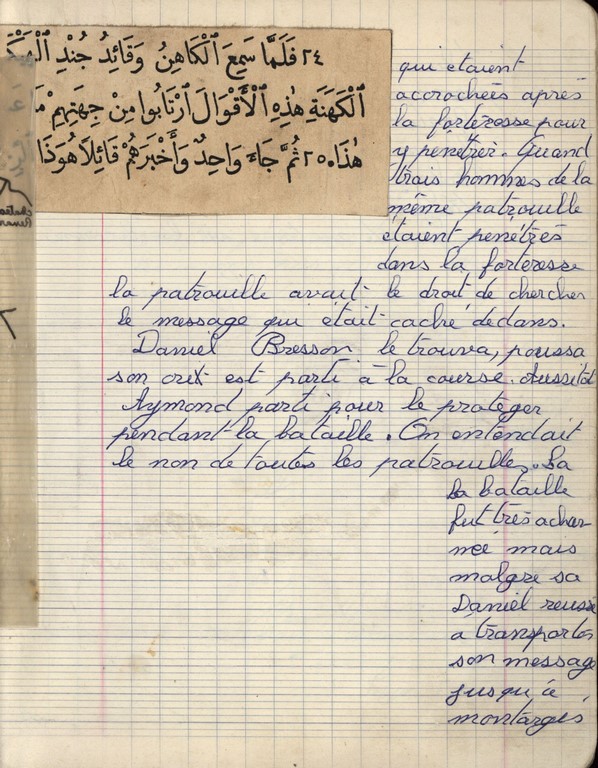 ٢٤ فَلَمَّا سَمِعَ ٱلْكَاهِنُ وَقَائِدُ جُنْدِ
ٱلْكَهَنَةِ هٰذِهِ ٱلْأَقْوَالَ ٱرْتَابُوا مِنْ جِهَتِهِمْ
هٰذَا. ٢٥ ثُمَّ جَاءَ وَاحِدٌ وَأَخْبَرَهُمْ قَائِلًا هُوَذَا
qui etaient
accrochées après
la forteresse pour
y penétrer. Quand
trois hommes de la
même patrouille
étaient penétrés
dans la forteresse
la patrouille avait le droit de chercher
le message qui était caché dedans.
Daniel Bresson le trouva, poussa
son est parti à la course. Aussitôt
Aymond parti pour le protèger
pendant la bataille. On entendait
le non de toutes les patrouilles. La
la bataille
fut très achar-
née mais
malgre sa
Daniel reussi
a transporter
son message
jusqu'à
montargis